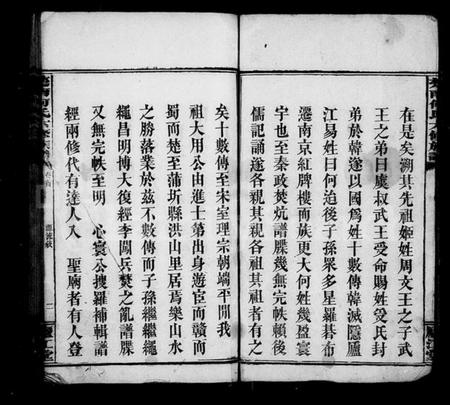 在是矣溯其先祖姬姓周文王之子武
王之弟曰虞叔武王受命賜姓受氏封
弟於韓遂以國為姓十數傳韓滅隱廬
江易姓曰何迨後子孫眾多星羅碁布
遷南京紅牌樓而族更大何姓幾盈寰
宇也至秦政焚坑譜牒幾無完帙賴後
儒記誦遂各親其親各祖其祖者有之
矣十數傳至宋室理宗朝端平間我
祖大用公由進士第出身遊宦而贛而
蜀而楚至蒲圻縣洪山里居焉樂山水
之勝落業於茲不數傳而子孫繼繼繩
繩昌明博大復經李闖兵燹之亂譜牒
又無完帙至明 心寰公搜羅補輯譜
經兩修代有達人入 聖廟者有人登
廬江堂